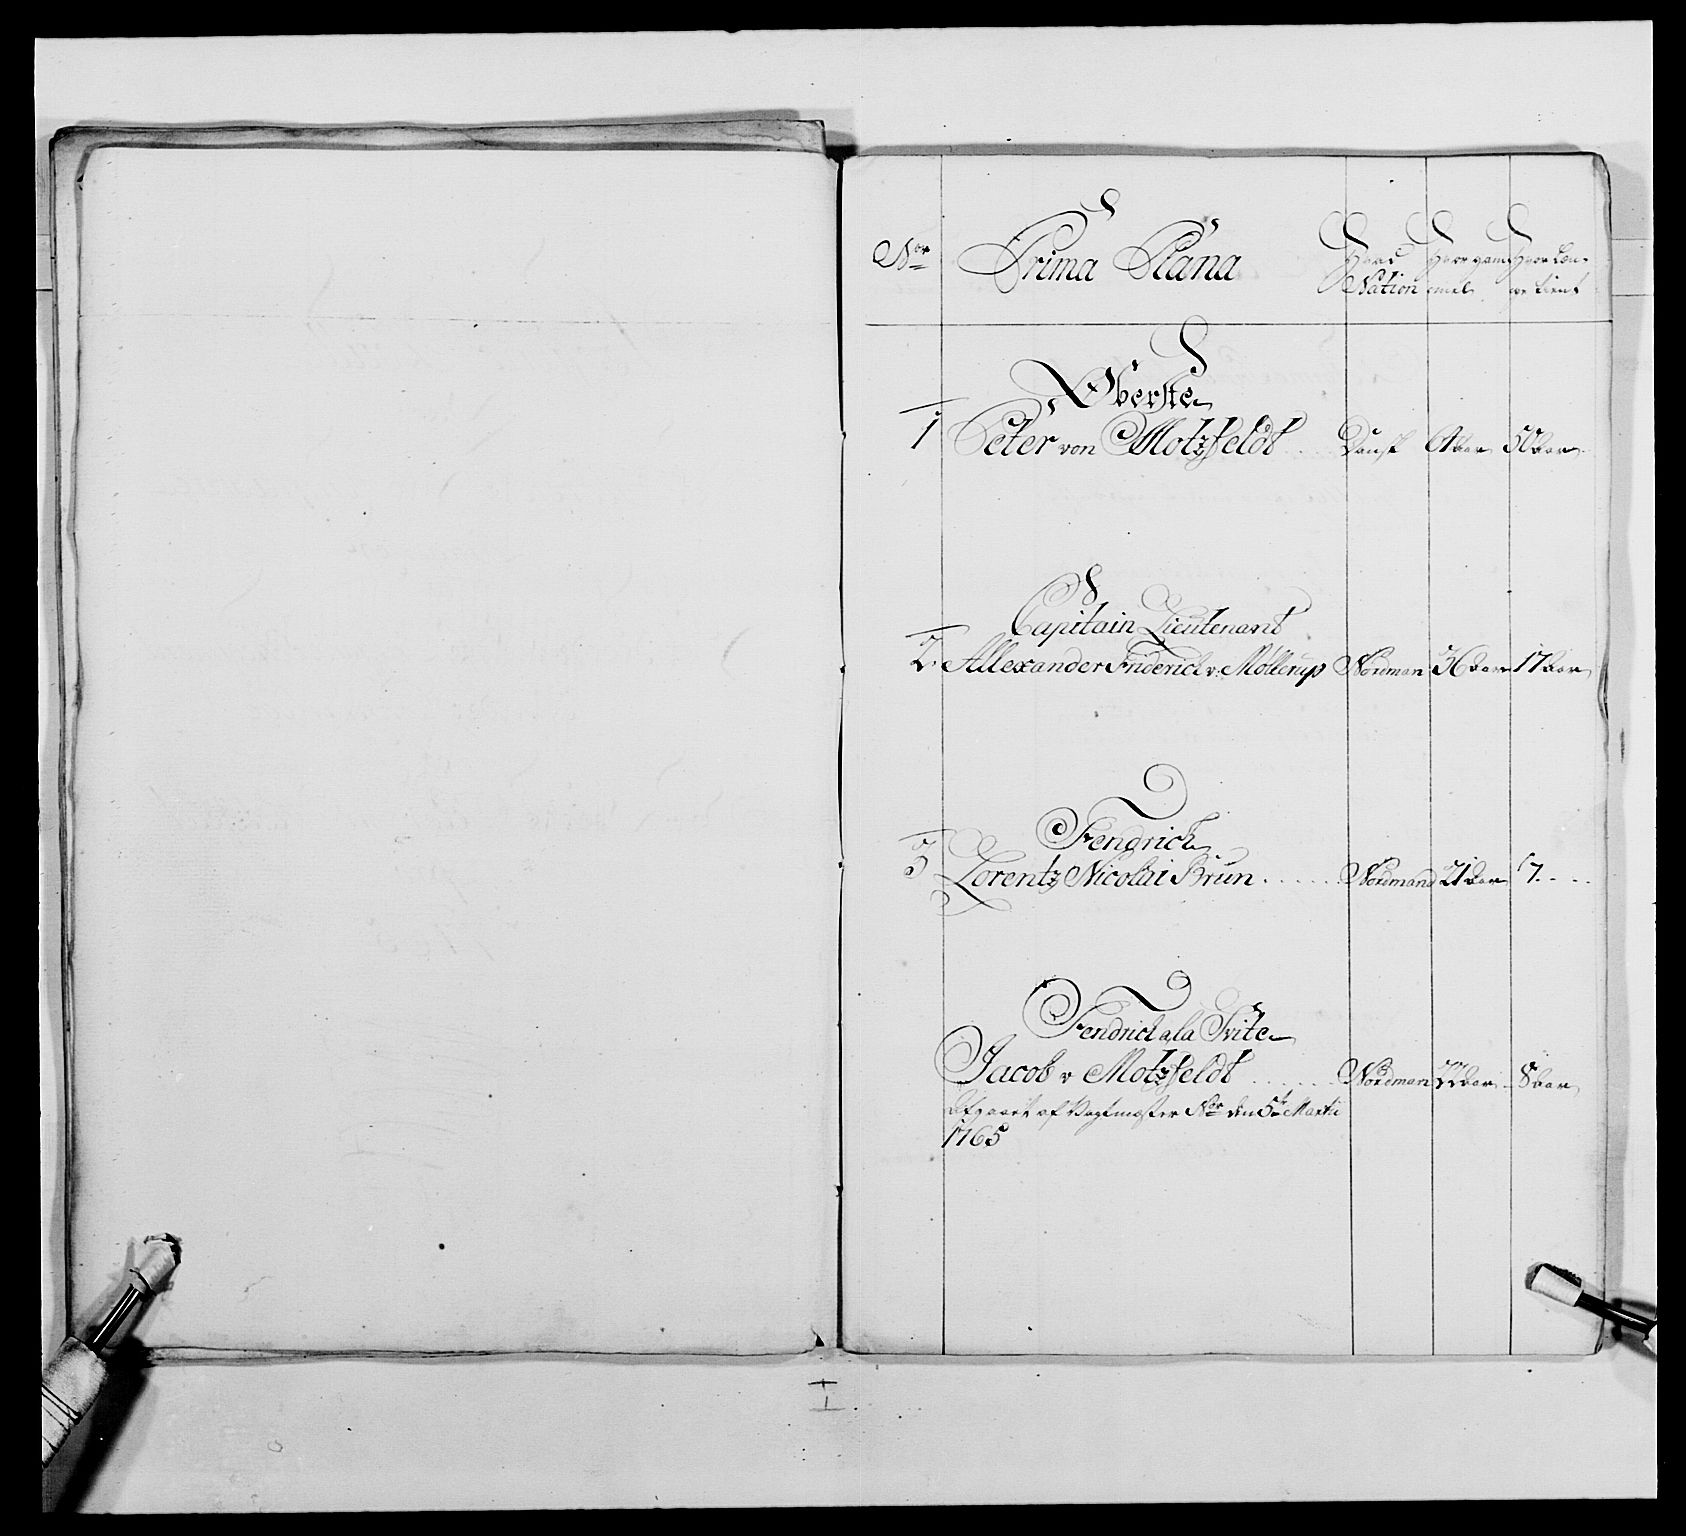 Nor Prima Plana Hvad Nation Hvor gam̄el Hvor len- ge tient
Oberste
1 Peter von Motzfeldt Dansk 61 aar 50 aar
Capitain Lieutenant
2. Allexander Friderich v. Møllerup Nordman 36 aar 17 aar
Fendrich
3 Lorentz Nicolai Brun Nordmand 21 aar 7
Fendrich a la Svite
Jacob v Motzfeldt Nordman 22 aar 8 aar
Afgaaet af Vagtmester Nor den 5te Martii
1765